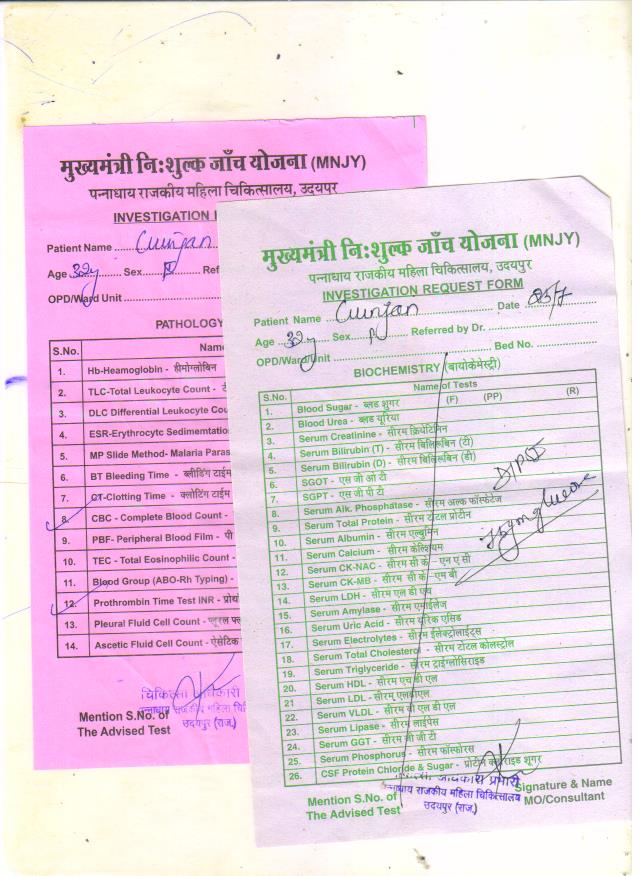 मुख्यमंत्री निःशुल्क जाँच योजना (MNJY)
पन्नाधाय राजकीय महिला चिकित्सालय, उदयपुर
INVESTIGATION
Patient Name Gunjan
Age 32y Sex F Ref
OPD/Ward Unit
PATHOLOGY
S.No. Nam
1. Hb-Heamoglobin - हीमोग्लोबिन
2. TLC-Total Leukocyte Count -
3. DLC Differential Leukocyte Cou
4. ESR-Erythrocytc Sedimemtatio
5. MP Slide Method- Malaria Paras
6. BT Bleeding Time - ब्लीडिंग टाईम
7. CT-Clotting Time - क्लोटिंग टाईम
8. CBC - Complete Blood Count -
9. PBF- Peripheral Blood Film - पी
10. TEC - Total Eosinophilic Count -
11. Blood Group (ABO-Rh Typing) -
12. Prothrombin Time Test INR - प्रोथ
13. Pleural Fluid Cell Count - प्लूरल फ्ल
14. Ascetic Fluid Cell Count - ऐसेटिक
चिकित्सा अधिकारी
पन्नाधाय राजकीय महिला चि
उदयपुर (राज.)
Mention S.No. of
The Advised Test
मुख्यमंत्री निःशुल्क जाँच योजना (MNJY)
पन्नाधाय राजकीय महिला चिकित्सालय, उदयपुर
INVESTIGATION REQUEST FORM
Patient Name Gunjan Date 25/7
Age 32y Sex F Referred by Dr.
OPD/Ward/Unit Bed No.
BIOCHEMISTRY (बायोकेमेस्ट्री)
S.No. Name of Tests
1. Blood Sugar - ब्लड शुगर (F) (PP) (R)
2. Blood Urea - ब्लड यूरिया
3. Serum Creatinine - सीरम क्रियेटिनिन
4. Serum Bilirubin (T) - सीरम बिलिरूबिन (टी)
5. Serum Bilirubin (D) - सीरम बिलिरूबिन (डी)
6. SGOT - एस जी ओ टी
7. SGPT - एस जी पी टी
8. Serum Alk. Phosphatase - सीरम अल्क फास्फेटेज
9. Serum Total Protein - सीरम टोटल प्रोटीन
10. Serum Albumin - सीरम एल्बुमिन
11. Serum Calcium - सीरम केल्शियम
12. Serum CK-NAC - सीरम सी के - एन ए सी
13. Serum CK-MB - सीरम सी के - एम बी
14. Serum LDH - सीरम एल डी एच
15. Serum Amylase - सीरम एमाईलेज
16. Serum Uric Acid - सीरम यूरिक एसिड
17. Serum Electrolytes - सीरम ईलेक्ट्रोलाईट्स
18. Serum Total Cholesterol - सीरम टोटल कोलस्ट्रोल
19. Serum Triglyceride - सीरम ट्राईग्लोसिराइड
20. Serum HDL - सीरम एच डी एल
21 Serum LDL - सीरम् एलडीएल
22. Serum VLDL - सीरम वी एल डी एल
23. Serum Lipase - सीरम लाईपेस
24. Serum GGT - सीरम जी जी टी
25. Serum Phosphorus - सीरम फॉस्फोरस
26. CSF Protein Chloride & Sugar - प्रोटीन क्लोराइड शूगर
DIPSI
प्रभारी
पन्नाधाय राजकीय महिला चिकित्सालय
उदयपुर (राज.)
Mention S.No. of
The Advised Test
Signature & Name
MO/Consultant